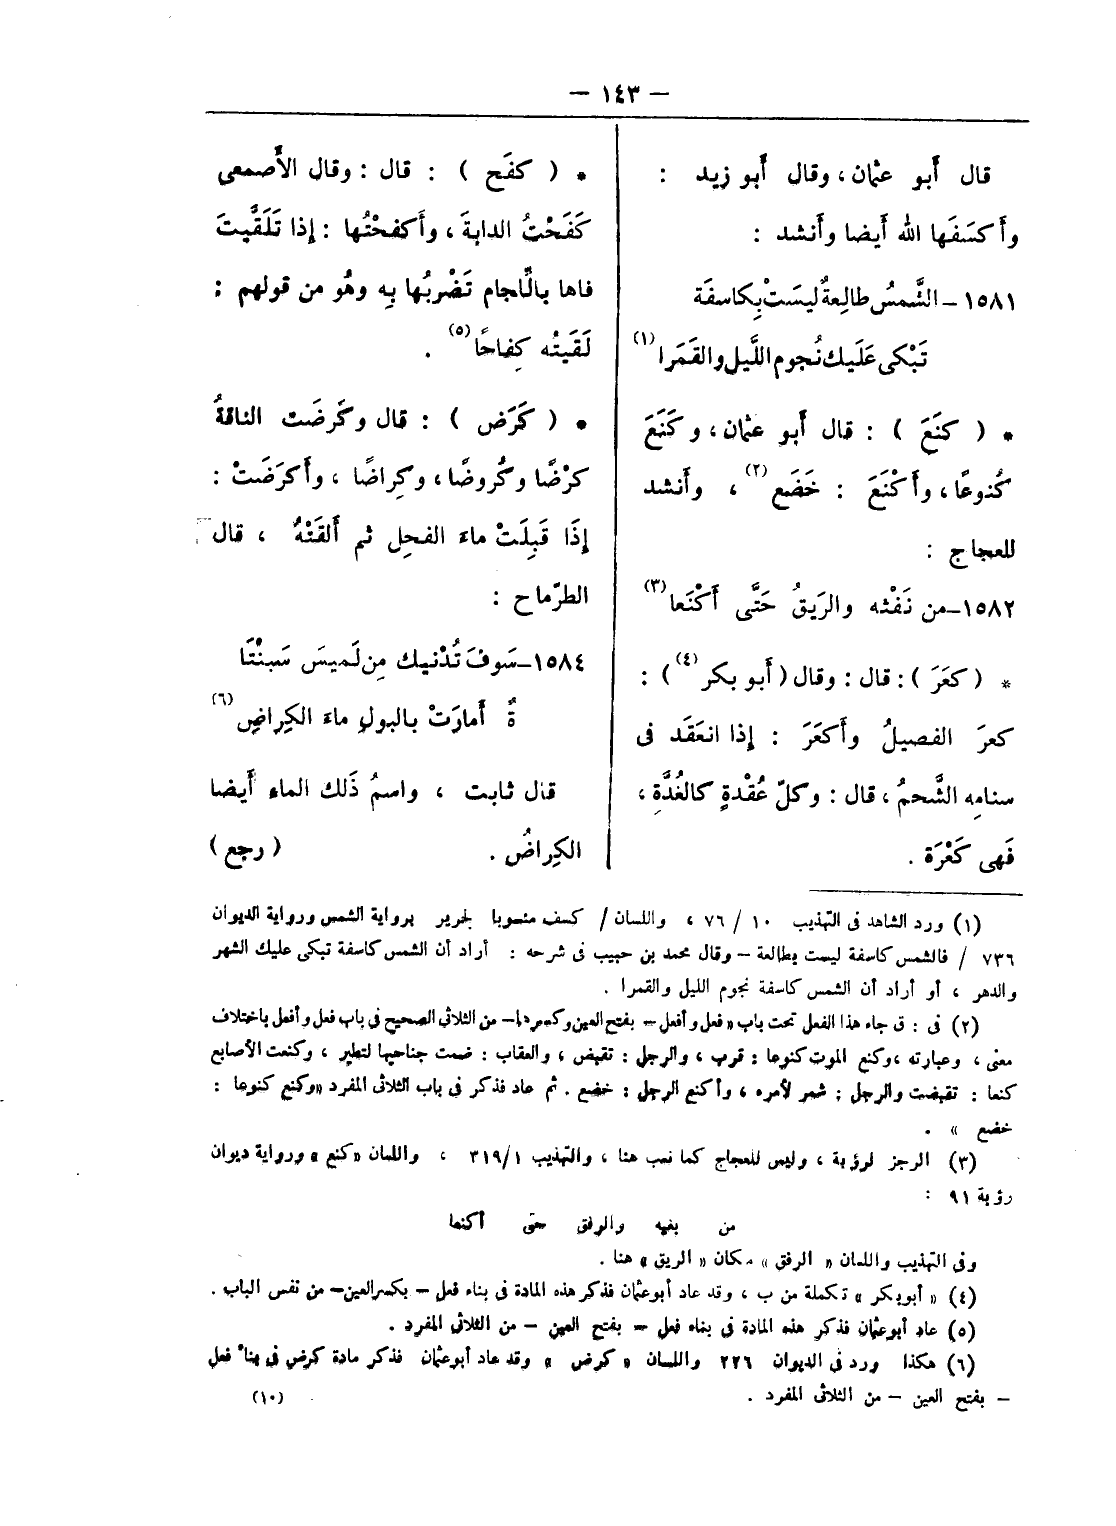 — ١٤٣ —
قال أبو عثمان، وقال أبو زيد :
وأكسَفَها الله أيضا وأنشد :
١٥٨١ – الشَّمسُ طالِعةٌ ليسَتْ بِكاسفَة
تَبْكى عَلَيك نُجوم اللَّيل والقَمَرا (١)
* ( كنَعَ ) : قال أبو عثمان، وكَنَعَ
كُنوعًا، وأَكْنَعَ : خَضَع (٢) ، وأنشد
للعجاج :
١٥٨٢–من نَفْثه والرَيقُ حَتَّى أَكْنَعا (٣)
* ( كعَرَ ) : قال : وقال ( أبو بكر (٤) ) :
كعرَ الفصيلُ وأكعَرَ : إذا انعَقَد فى
سنامِه الشَّحمُ ، قال : وكلّ عُقْدةٍ كالغُدَّةِ ،
فَهى كَعْرَة .
* ( كفَح ) : قال : وقال الأَصمعى
كَفَحْتُ الدابةَ ، وأَكفحْتُها : إذا تَلَقَّيتَ
فاها باللِّجام تَضْربُها بِه وهُو من قولهم :
لَقَيتُه كِفاحًا (٥) .
* ( كَرَض ) : قال وكَرضَت الناقةُ
كرْضًا وكُروضًا، وكِراضًا ، وأكرَضَتْ :
إذَا قَبِلَتْ ماءَ الفحلِ ثم ألقَتْهُ ، قال
الطرّماح :
١٥٨٤–سَوفَ تُدْنيك مِن لَميسَ سَبَنْتَا
ةٌ أَمارَتْ بالبولِ ماءَ الكِراضِ (٦)
قال ثابت ، واسمُ ذَلك الماء أَيضا
الكِراضُ . ( رجع )
(١) ورد الشاهد فى التهذيب ١٠ / ٧٦ ، واللسان / كسف منسوبا لجرير برواية الشمس ورواية الديوان
٧٣٦ / فالشمس كاسفة ليست بطالعة – وقال محمد بن حبيب فى شرحه : أراد أن الشمس كاسفة تبكى عليك الشهر
والدهر ، أو أراد أن الشمس كاسفة نجوم الليل والقمرا .
(٢) فى : ق جاء هذا الفعل تحت باب « فعل وأفعل – بفتح العين وكسرها– من الثلاثى الصحيح فى باب فعل وأفعل باختلاف
معنى ، وعبارته ، وكنع الموت كنوعا : قرب ، والرجل : تقبض ، والعقاب : ضمت جناحيها لتطير ، وكنعت الأصابع
كنعا : تقبضت والرجل : شمر لأمره ، وأكنع الرجل : خضع . ثم عاد فذكر فى باب الثلاثى المفرد «وكنع كنوعا :
خضع » .
(٣) الرجز لرؤبة ، وليس للعجاج كما نسب هنا ، والتهذيب ٣١٩/١ ، واللسان «كنع » ورواية ديوان
رؤبة ٩١ :
من بغيه والرفق حتى أكنعا
وفى التهذيب واللسان « الرفق » مكان « الريق » هنا .
(٤) « أبوبكر » تكملة من ب ، وقد عاد أبوعثمان فذكر هذه المادة فى بناء فعل – بكسر العين– من نفس الباب .
(٥) عاد أبوعثمان فذكر هذه المادة فى بناء فعل – بفتح العين – من الثلاثى المفرد .
(٦) هكذا ورد فى الديوان ٢٢٦ واللسان « كرض » وقد عاد أبوعثمان فذكر مادة كرض فى بناء فعل
– بفتح العين – من الثلاثى المفرد .
(١٠)